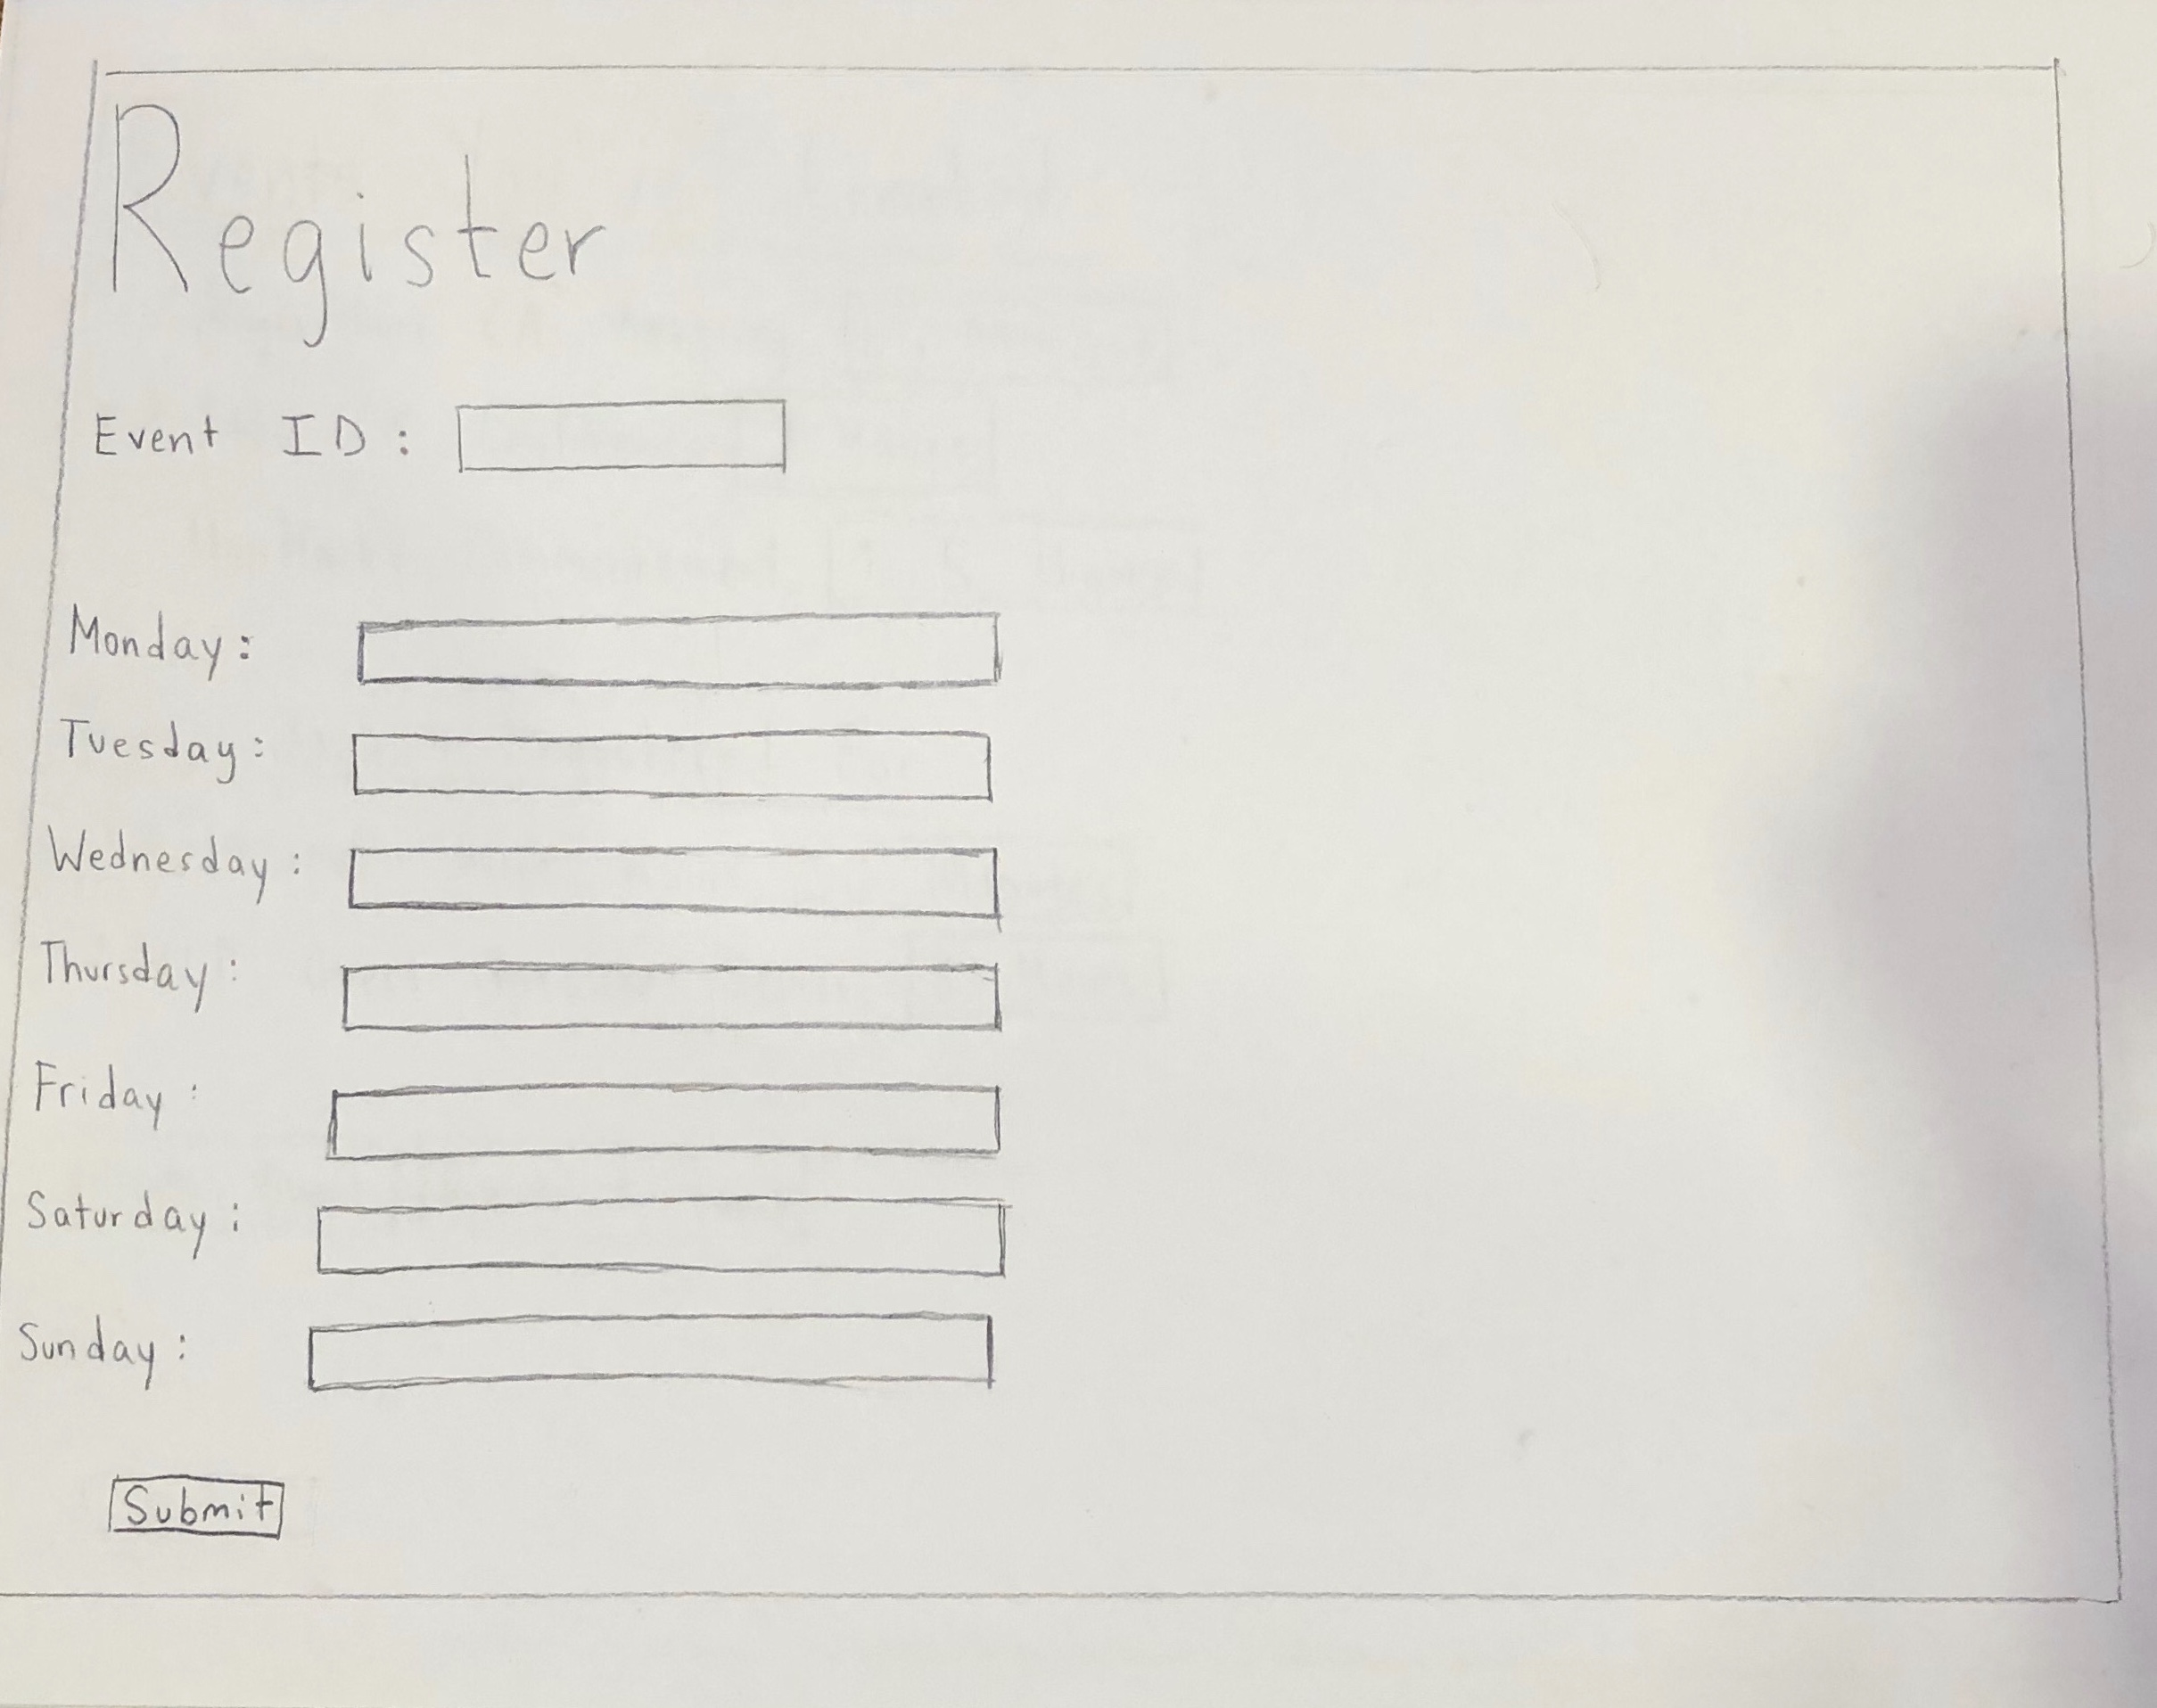 Register
Event ID:
Monday:
Tuesday:
Wednesday:
Thursday:
Friday:
Saturday:
Sunday:
Submit